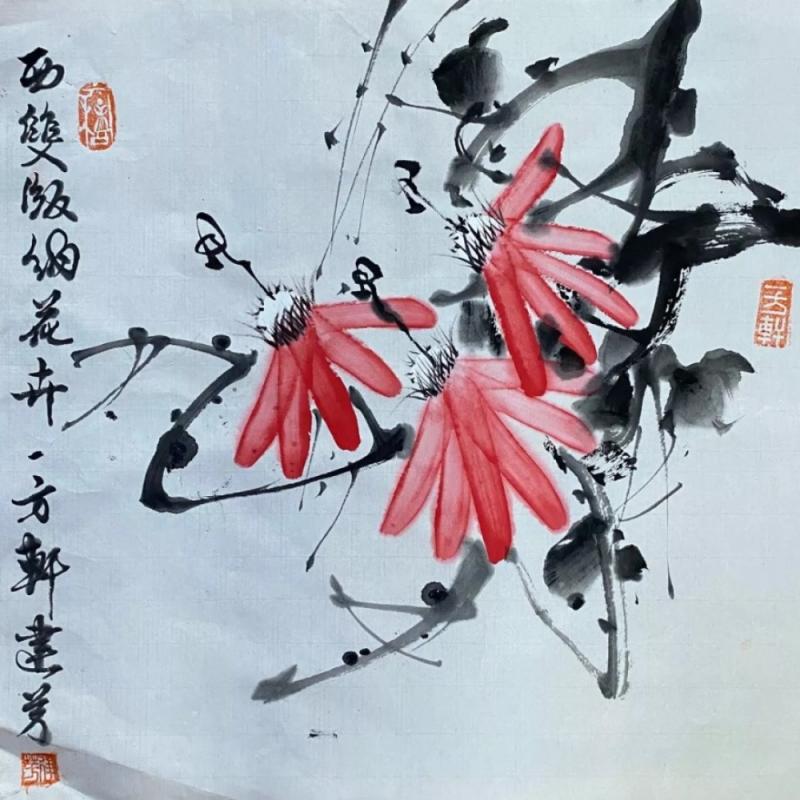 西雙版納花卉一方軒建芳
一方軒